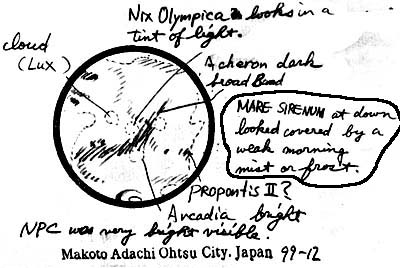 Nix Olympica looks in a
tint of light.
cloud
(Lux)
Acheron dark
broad Band
MARE SIRENUM at down
looked covered by a
weak morning
mist or frost.
Propontis II?
Arcadia bright
NPC was very bright visible.
Makoto Adachi Ohtsu City, Japan 99-12